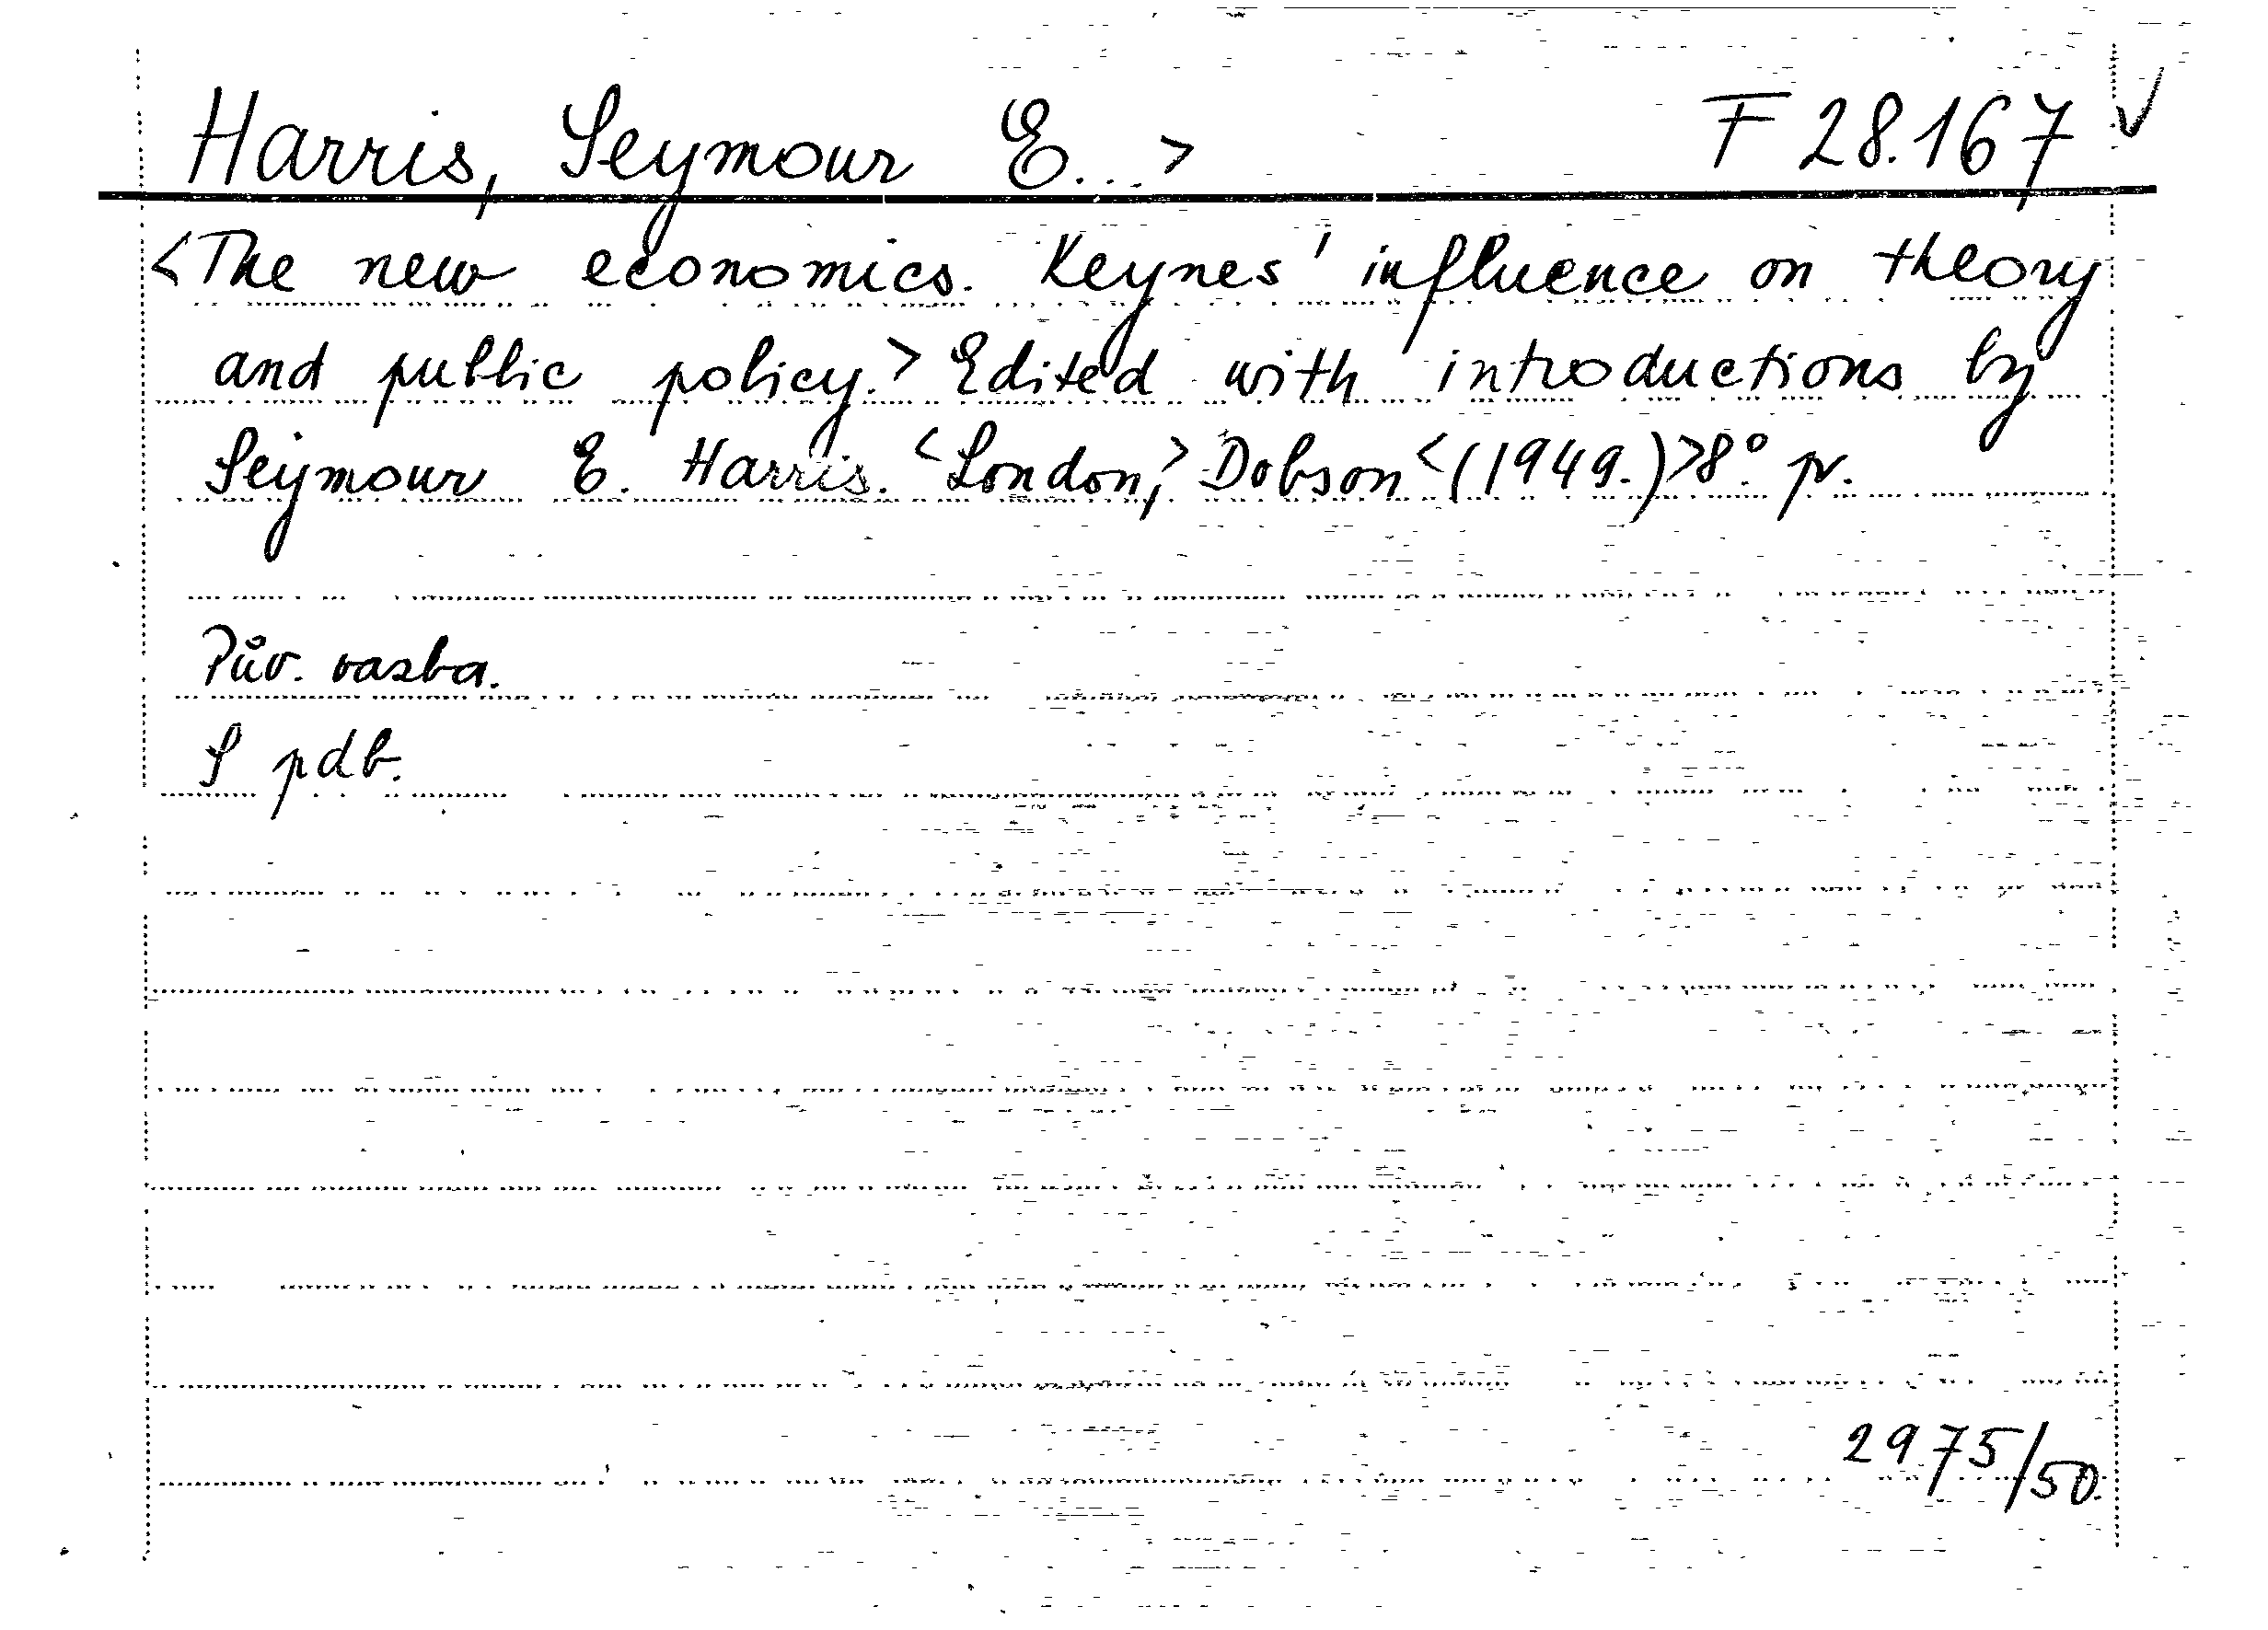 Harris, Seymour E... > F 28.167 √
<The new economics. Keynes' influence on theory
and public policy.> Edited with introductions by
Seymour E. Harris. <London,> Dobson <(1949.)> 8°. pr.
Pův. vazba.
S pdb.
2975/50.